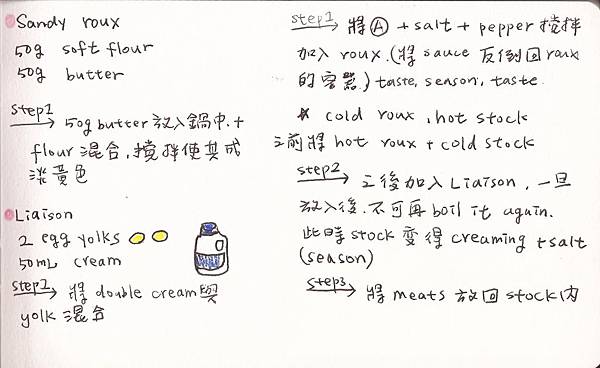 Sandy roux
50g soft flour
50g butter
step1 50g butter 放入鍋中,+
flour 混合,攪拌使其成
淡黃色
Liaison
2 egg yolks
50mL cream
step1 將 double cream 與
yolk 混合
step1 將 Ⓐ + salt + pepper 攪拌
加入 roux.(將 sauce 反倒回 roux
的容器.) taste, season, taste.
* cold roux, hot stock
之前將 hot roux + cold stock
step2 之後加入 Liaison, 一旦
放入後,不可再 boil it again.
此時 stock 变得 creaming + salt
(season)
step3 將 meats 放回 stock 內